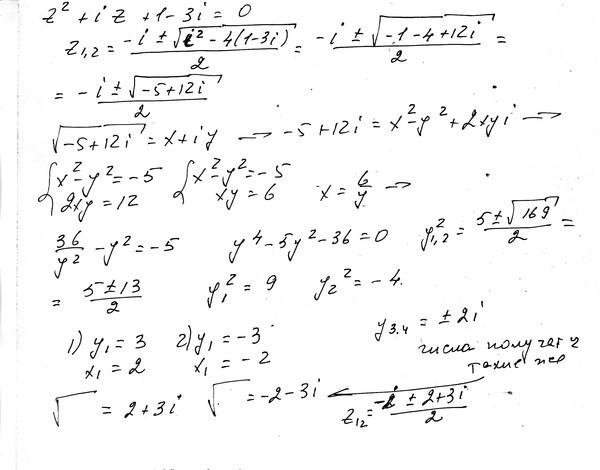 z² + iz + 1 - 3i = 0
z₁,₂ = (-i ± √(i² - 4(1-3i)))/2 = (-i ± √(-1 - 4 + 12i))/2 =
= (-i ± √(-5 + 12i))/2
√(-5 + 12i) = x + iy → -5 + 12i = x² - y² + 2xyi →
{x² - y² = -5 {x² - y² = -5
2xy = 12 xy = 6 x = 6/y →
36/y² - y² = -5 y⁴ - 5y² - 36 = 0 y²₁,₂ = (5 ± √169)/2 =
= (5 ± 13)/2 y₁² = 9 y₂² = -4.
y₃.₄ = ± 2i
1) y₁ = 3 2) y₁ = -3
x₁ = 2 x₁ = -2
числа получат
такие же
√ = 2 + 3i √ = -2 - 3i
z₁₂ = (-i ± 2 + 3i)/2